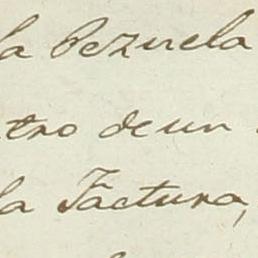 la Pezuela
tro de un
la Factura,